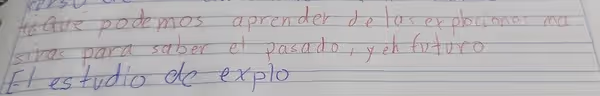 que podemos aprender de las explociones ma
sivas para saber el pasado, y eh futuro
El estudio de explo